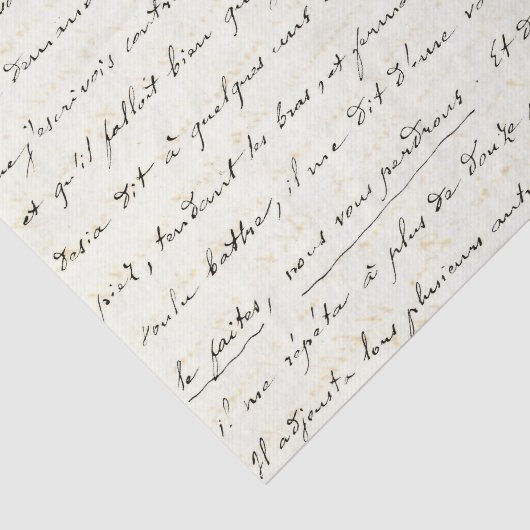 demand
que j'escrivois contr
et qu'il falloit bien qu
desia dit à quelques uns
piez, tendant les bras, et ferma
voulu battre, il me dit d'une vo
le faites, nous vous perdrons. Et d
il me répéta à plus de douze
Il adjousta tous plusieurs autr